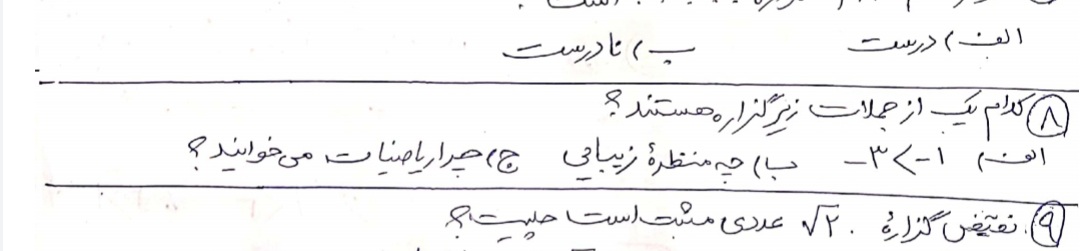 الف) درست ب) نادرست
۸ کدام یک از جملات زیر گزاره هستند؟
الف) -۳ < -۱ ب) چه منظرهٔ زیبایی ج) چرا ریاضیات می‌خوانید؟
۹. نقیض گزارهٔ . √۲ عددی مثبت است چیست؟